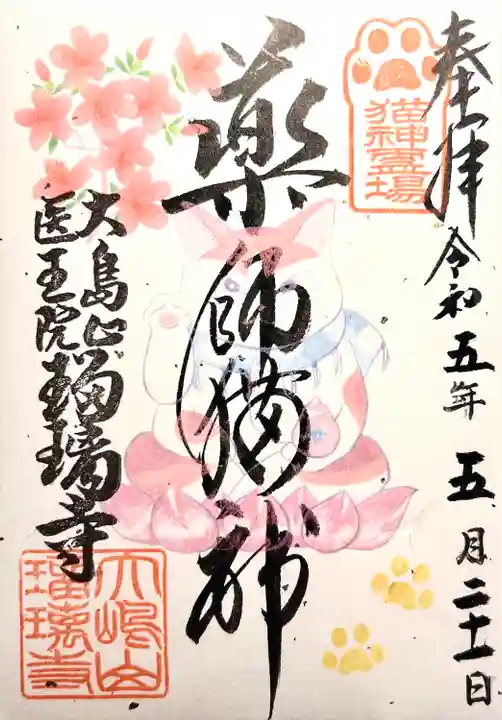 奉拝
令和五年五月二十一日
猫神霊場
薬師猫神
大島山
医王院
瑠璃寺
大嶋山
瑠璃寺